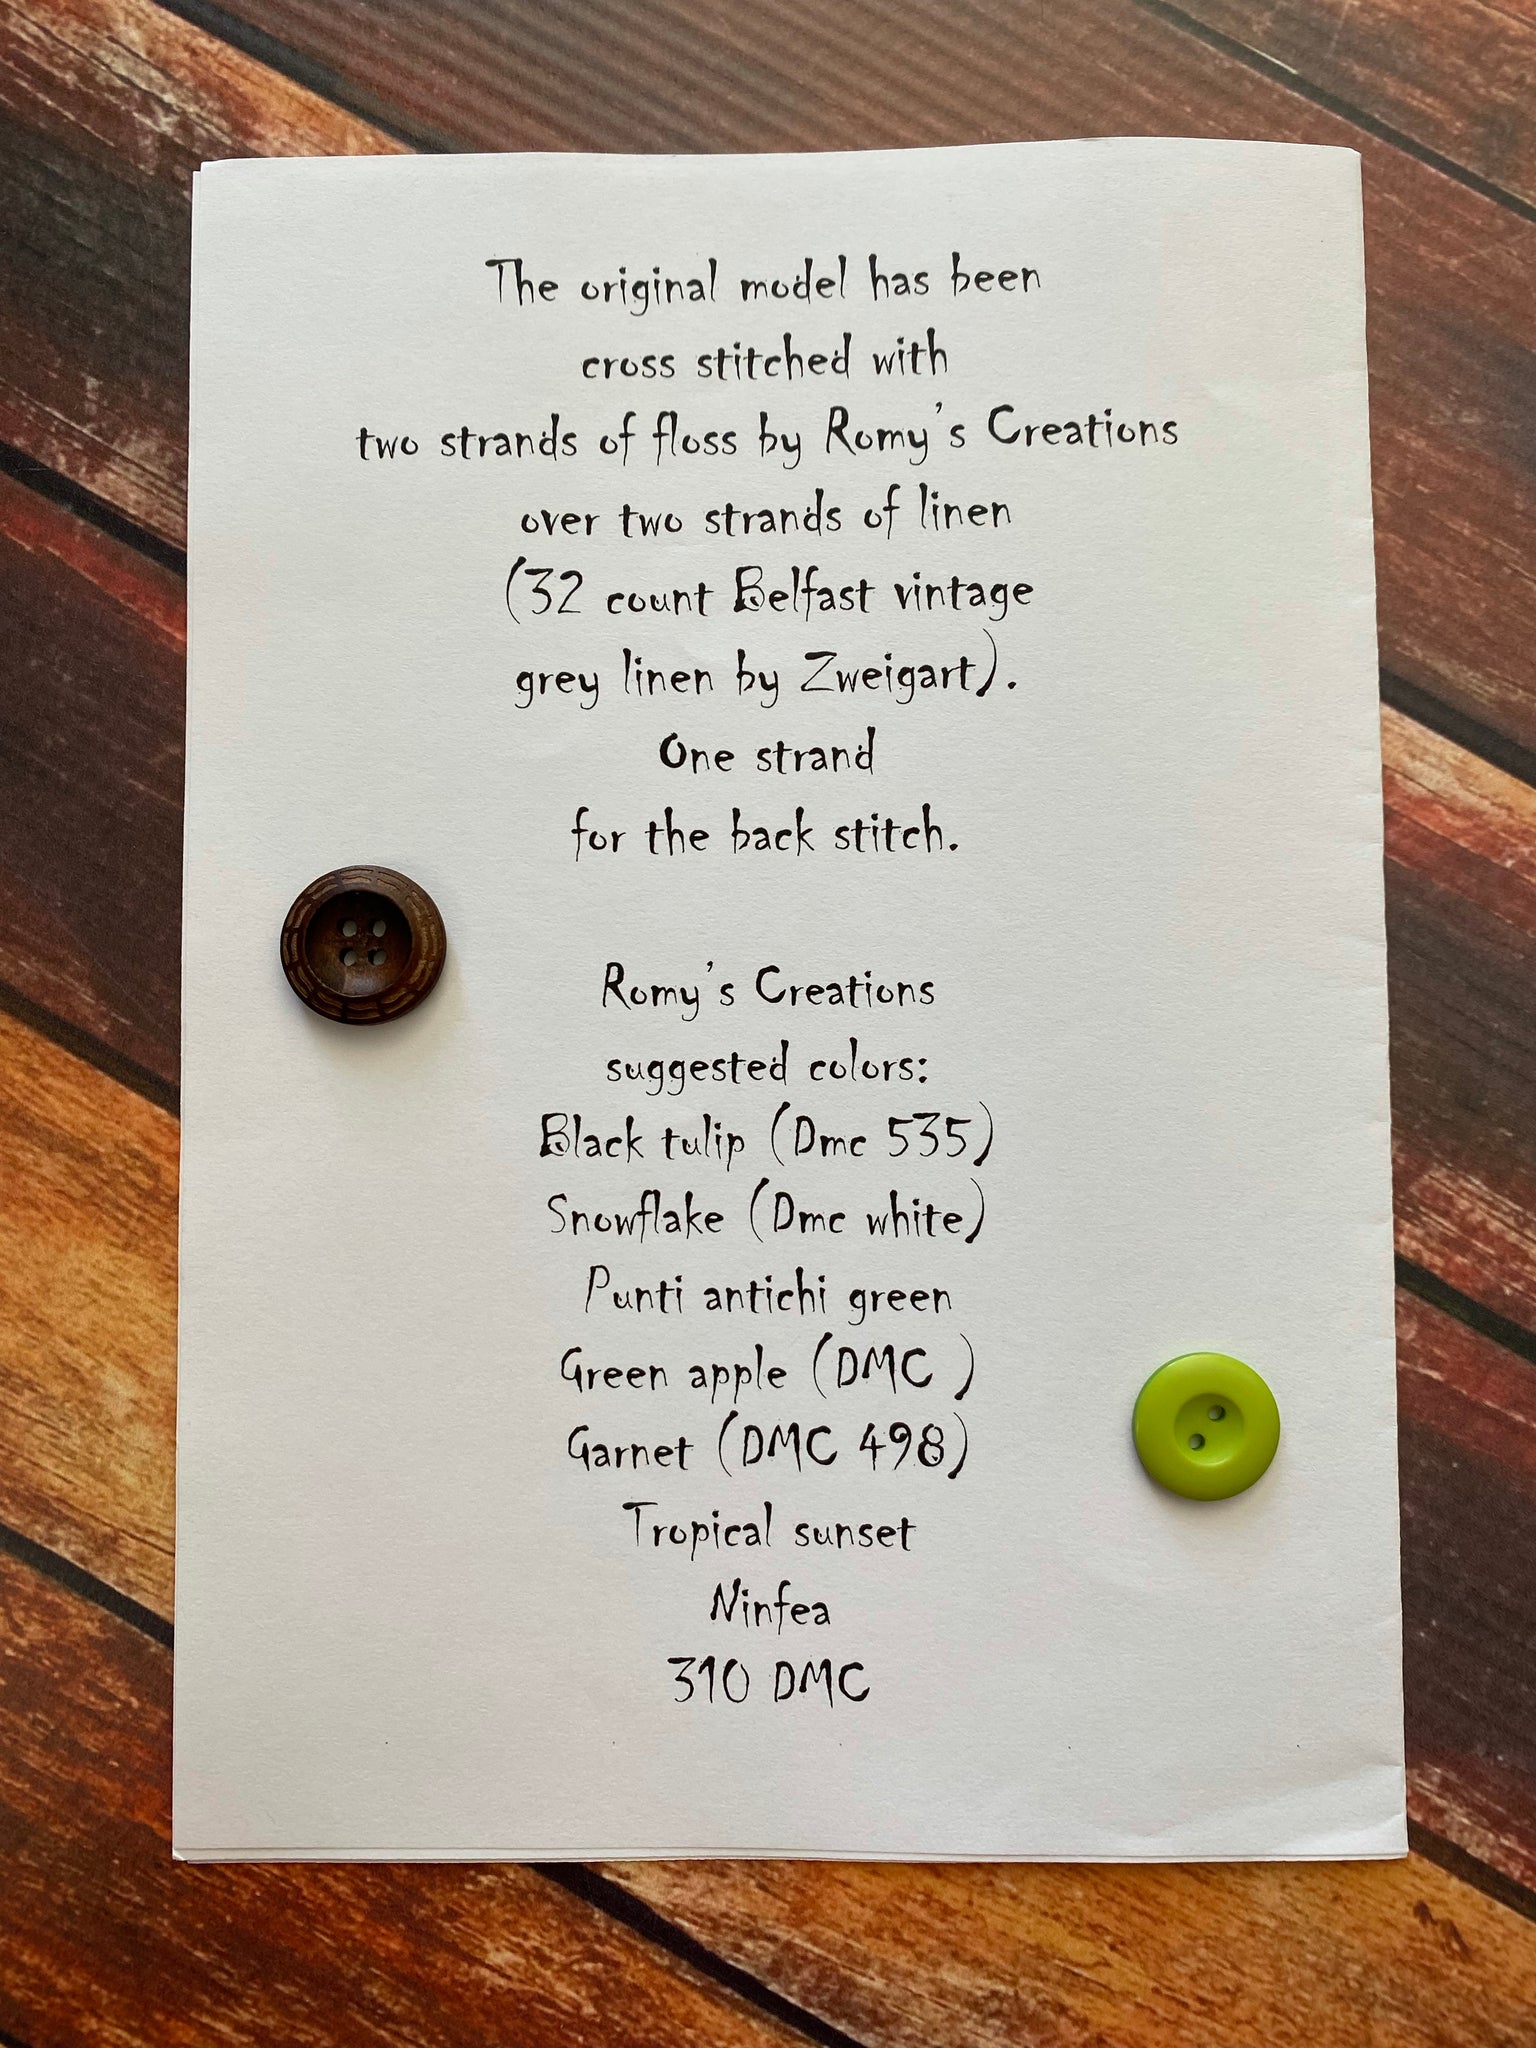 The original model has been
cross stitched with
two strands of floss by Romy's Creations
over two strands of linen
(32 count Belfast vintage
grey linen by Zweigart).
One strand
for the back stitch.
Romy's Creations
suggested colors:
Black tulip (Dmc 535)
Snowflake (Dmc white)
Punti antichi green
Green apple (DMC )
Garnet (DMC 498)
Tropical sunset
Ninfea
310 DMC